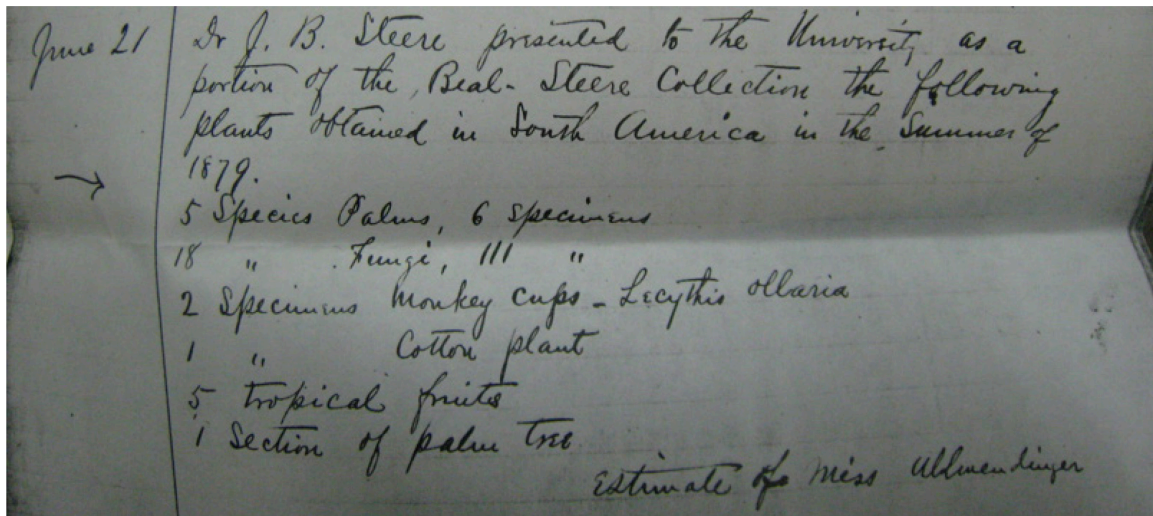 June 21 Dr J. B. Steere presented to the University as a
portion of the Beal-Steere Collection the following
plants obtained in South America in the Summer of
1879.
5 Species Palms, 6 specimens
18 " Fungi, 111 "
2 Specimens Monkey cups - Lecythis ollaria
1 " Cotton plant
5 tropical fruits
1 Section of palm tree
Estimate of Miss